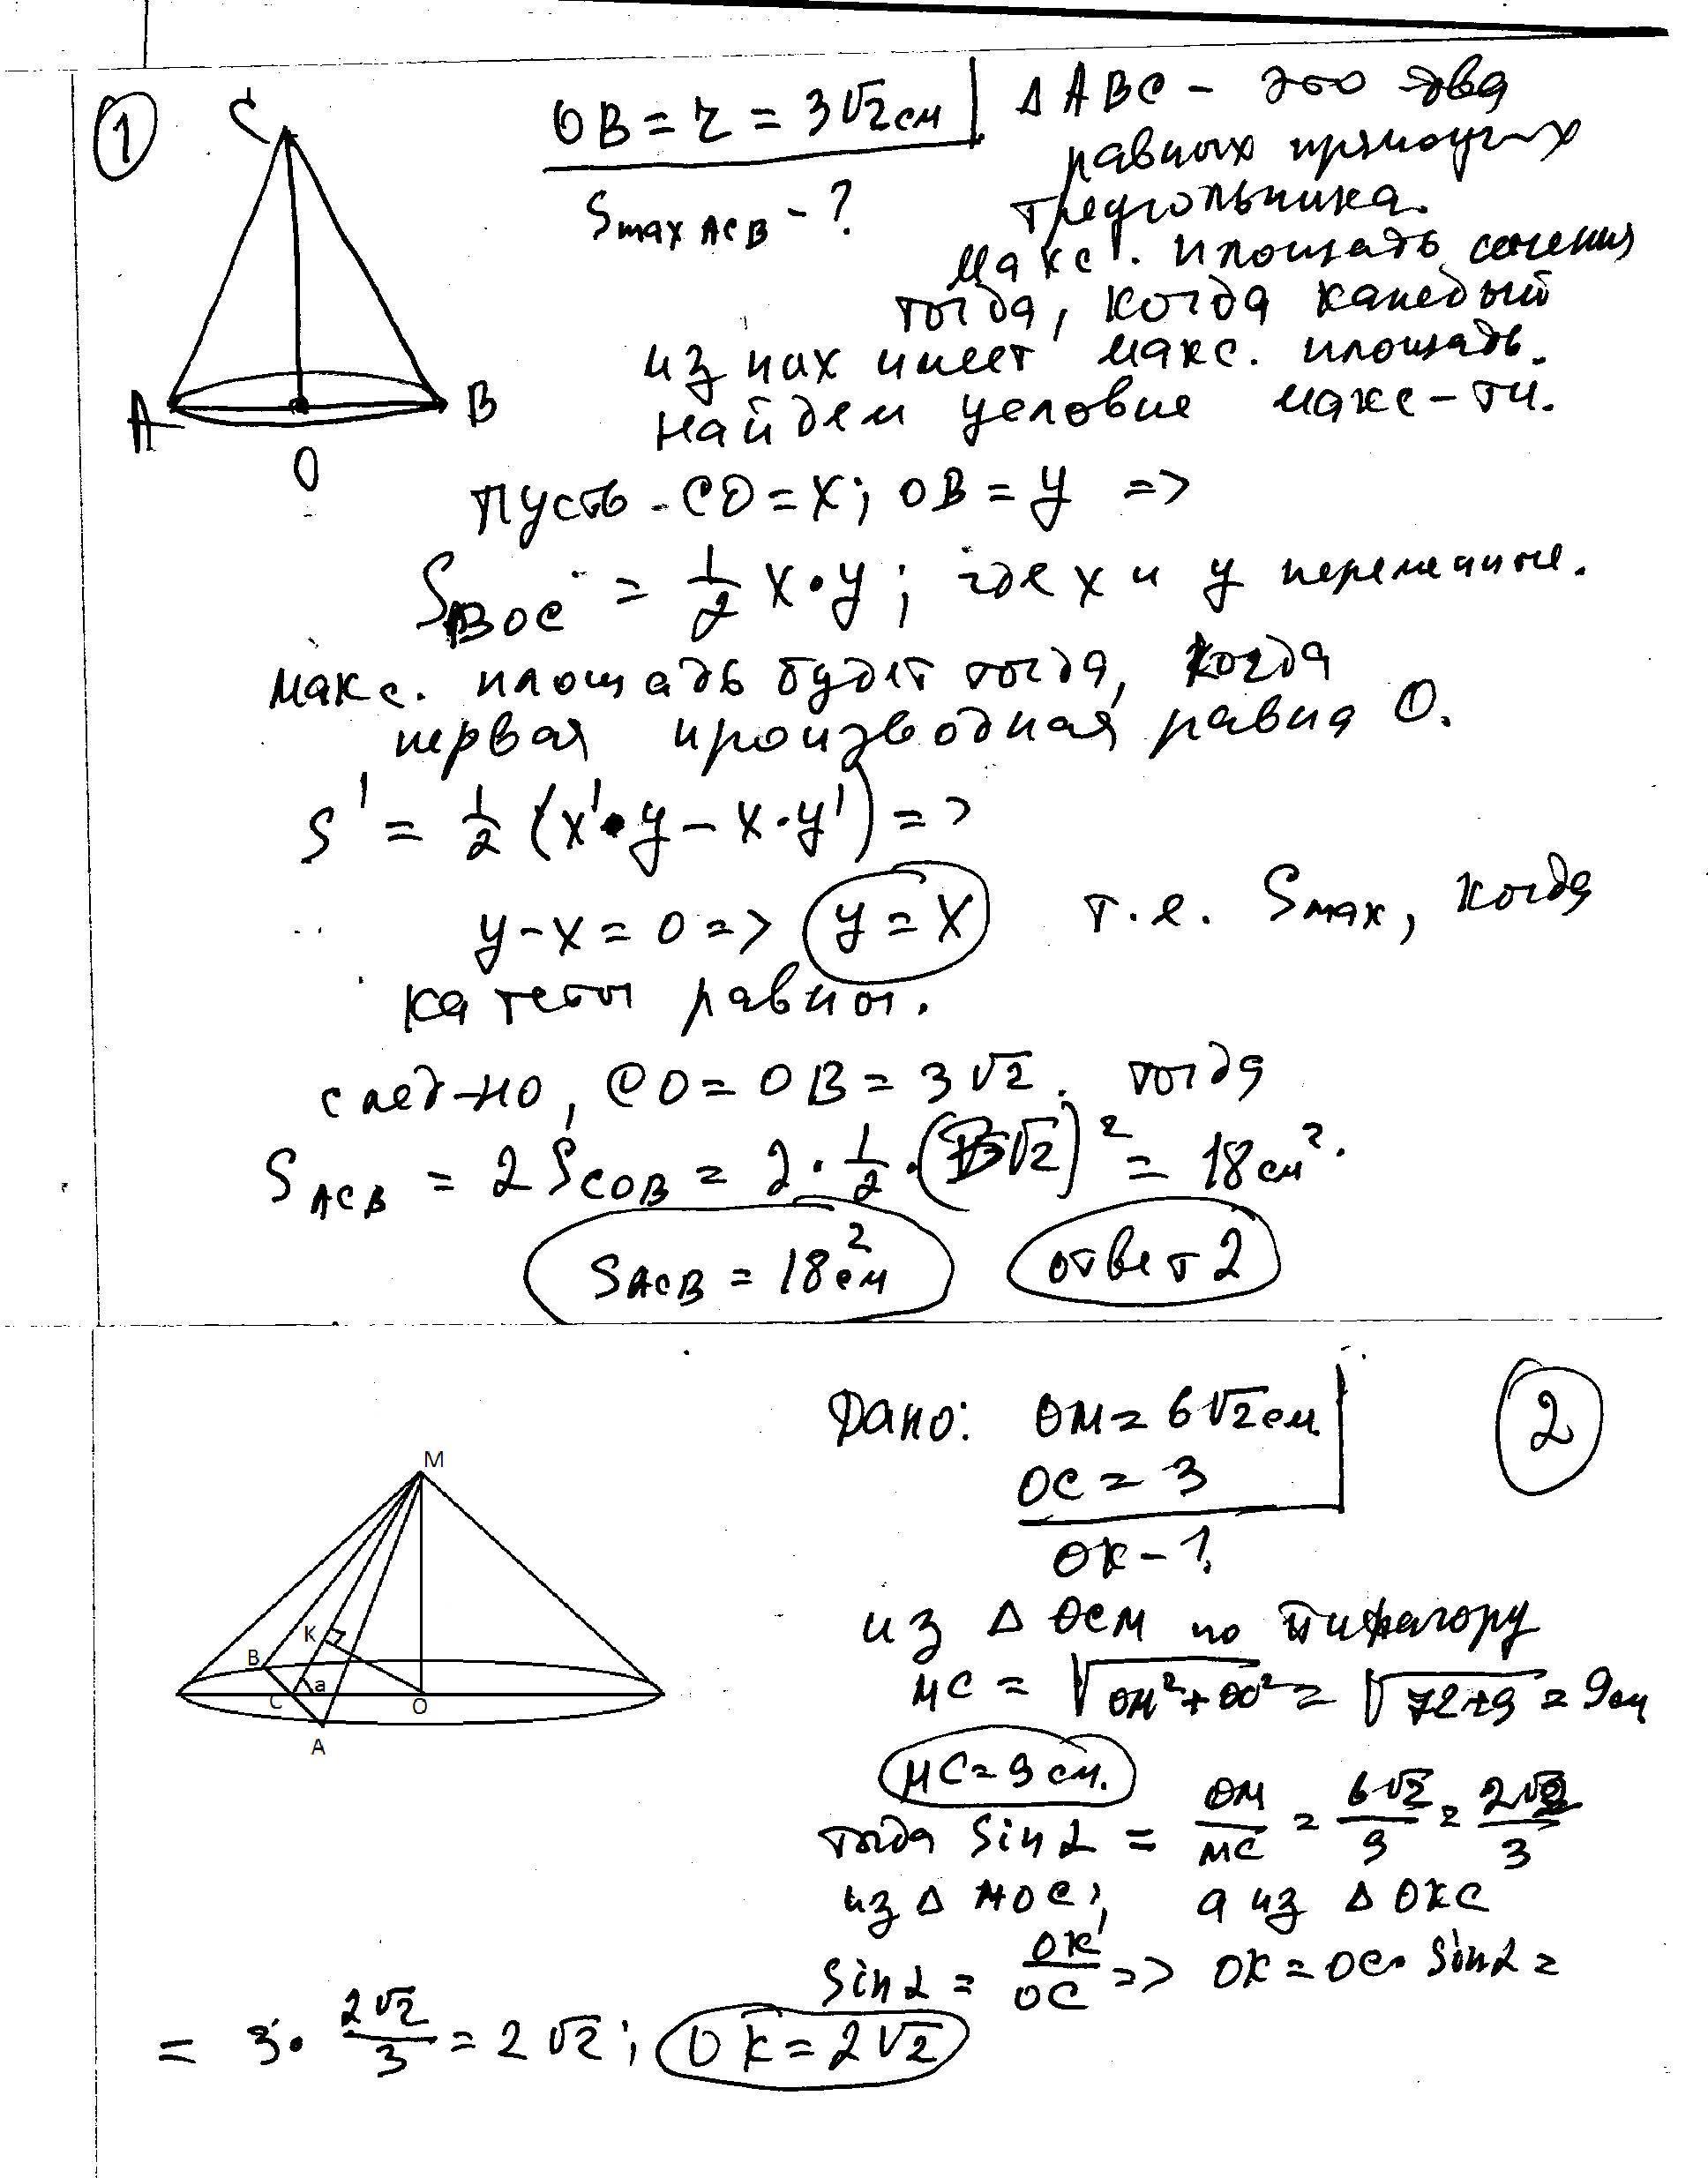 1
C
A
B
O
OB = r = 3√2 см
Smax ACB - ?
Δ ABC - это два
равных прямоуг-х
треугольника.
макс. площадь сечения
тогда, когда каждый
из них имеет макс. площадь.
найдем условие макс-ти.
пусть CO = x; OB = y =>
S BOC = 1/2 x · y; где x и y переменные.
макс. площадь будет тогда, когда
первая производная равна 0.
S' = 1/2 (x' · y - x · y') =>
y - x = 0 => y = x т.е. Smax, когда
катеты равны.
след-но, CO = OB = 3√2. тогда
S ACB = 2 S COB = 2 · 1/2 · (3√2)² = 18 см².
S ACB = 18 см² ответ 2
2
Дано: OM = 6√2 см
OC = 3
OK - ?
M
K
B
C
a
O
A
из Δ OCM по Пифагору
MC = √OM² + OC² = √72+9 = 9 см
MC = 9 см.
тогда sin α = OM/MC = 6√2/9 = 2√2/3
из Δ MOC; а из Δ OKC
sin α = OK/OC => OK = OC · sin α =
= 3 · 2√2/3 = 2√2; OK = 2√2